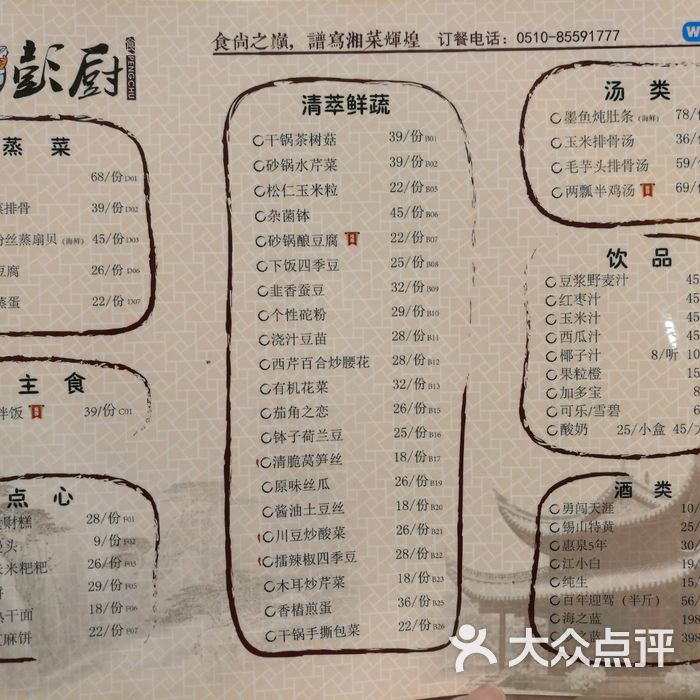 彭厨
PENGCHU
食尚之巅，譜寫湘菜輝煌 订餐电话：0510-85591777
蒸菜
68/份D01
排骨 39/份D02
粉丝蒸扇贝(海鲜) 45/份D03
豆腐 26/份D06
蒸蛋 22/份D07
主食
拌饭 39/份C01
点心
财糕 28/份F01
馒头 9/份F02
米粑粑 26/份F03
饼 29/份F05
热干面 18/份F06
芝麻饼 22/份F07
清萃鲜蔬
干锅茶树菇 39/份B01
砂锅水芹菜 39/份B02
松仁玉米粒 22/份B05
杂菌钵 45/份B06
砂锅酿豆腐 22/份B07
下饭四季豆 25/份B08
韭香蚕豆 32/份B09
个性砣粉 29/份B10
浇汁豆苗 28/份B11
西芹百合炒腰花 28/份B12
有机花菜 32/份B13
茄角之恋 26/份B15
钵子荷兰豆 25/份B16
清脆莴笋丝 18/份B17
原味丝瓜 26/份B19
酱油土豆丝 18/份B20
川豆炒酸菜 26/份B21
擂辣椒四季豆 28/份B22
木耳炒芹菜 22/份B23
香椿煎蛋 36/份B25
干锅手撕包菜 22/份B26
汤类
墨鱼炖肚条(海鲜) 78/份
玉米排骨汤 36/份
毛芋头排骨汤 59/份
两瓢半鸡汤 69/份
饮品
豆浆野麦汁 45
红枣汁 45
玉米汁 45
西瓜汁 45
椰子汁 8/听 10
果粒橙 15
加多宝 8
可乐/雪碧 8
酸奶 25/小盒 45/大
酒类
勇闯天涯 10/
锡山特黄 25/
惠泉5年 30/
江小白 19/
纯生 15/
百年迎驾（半斤） 56/
海之蓝 198
之蓝 398
大众点评